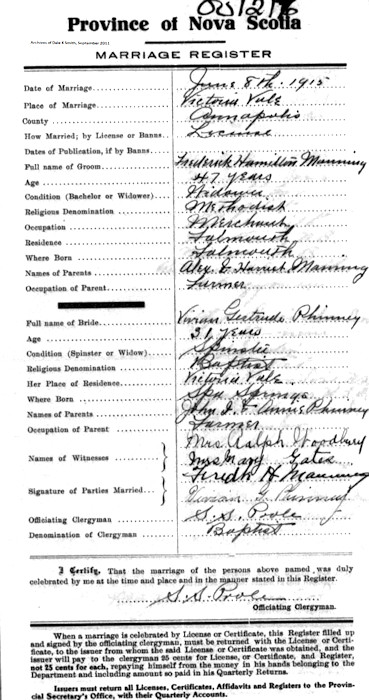 Province of Nova Scotia
MARRIAGE REGISTER
Date of Marriage June 8th. 1915
Place of Marriage Victoria Vale
County Annapolis
How Married; by License or Banns License
Dates of Publication, if by Banns
Full name of Groom Frederick Hamilton Manning
Age 47 years
Condition (Bachelor or Widower) Widower
Religious Denomination Methodist
Occupation Merchant
Residence Falmouth
Where Born Falmouth
Names of Parents Alex. & Harriet Manning
Occupation of Parent Farmer
Full name of Bride Vivian Gertrude Phinney
Age 31 years
Condition (Spinster or Widow) Spinster
Religious Denomination Baptist
Her Place of Residence Victoria Vale
Where Born Spa Springs
Names of Parents John & Annie Phinney
Occupation of Parent Farmer
Names of Witnesses Mrs Ralph Woodbury
Mrs Mary Gates
Signature of Parties Married Fredk H Manning
Vivian G. Phinney
Officiating Clergyman S. S. Poole
Denomination of Clergyman Baptist
I Certify, That the marriage of the persons above named was duly
celebrated by me at the time and place and in the manner stated in this Register.
S. S. Poole
Officiating Clergyman.
When a marriage is celebrated by License or Certificate, this Register filled up
and signed by the officiating clergyman, must be returned with the License or Certi-
ficate, to the issuer from whom the said License or Certificate was obtained, and the
issuer will pay to the clergyman 25 cents for License, or Certificate, and Register,
not 25 cents for each, repaying himself from the money in his hands belonging to the
Department and including amount so paid in his Quarterly Account.
Issuers must return all Licenses, Certificates, Affidavits and Registers to the Provin-
cial Secretary's Office, with their Quarterly Accounts.